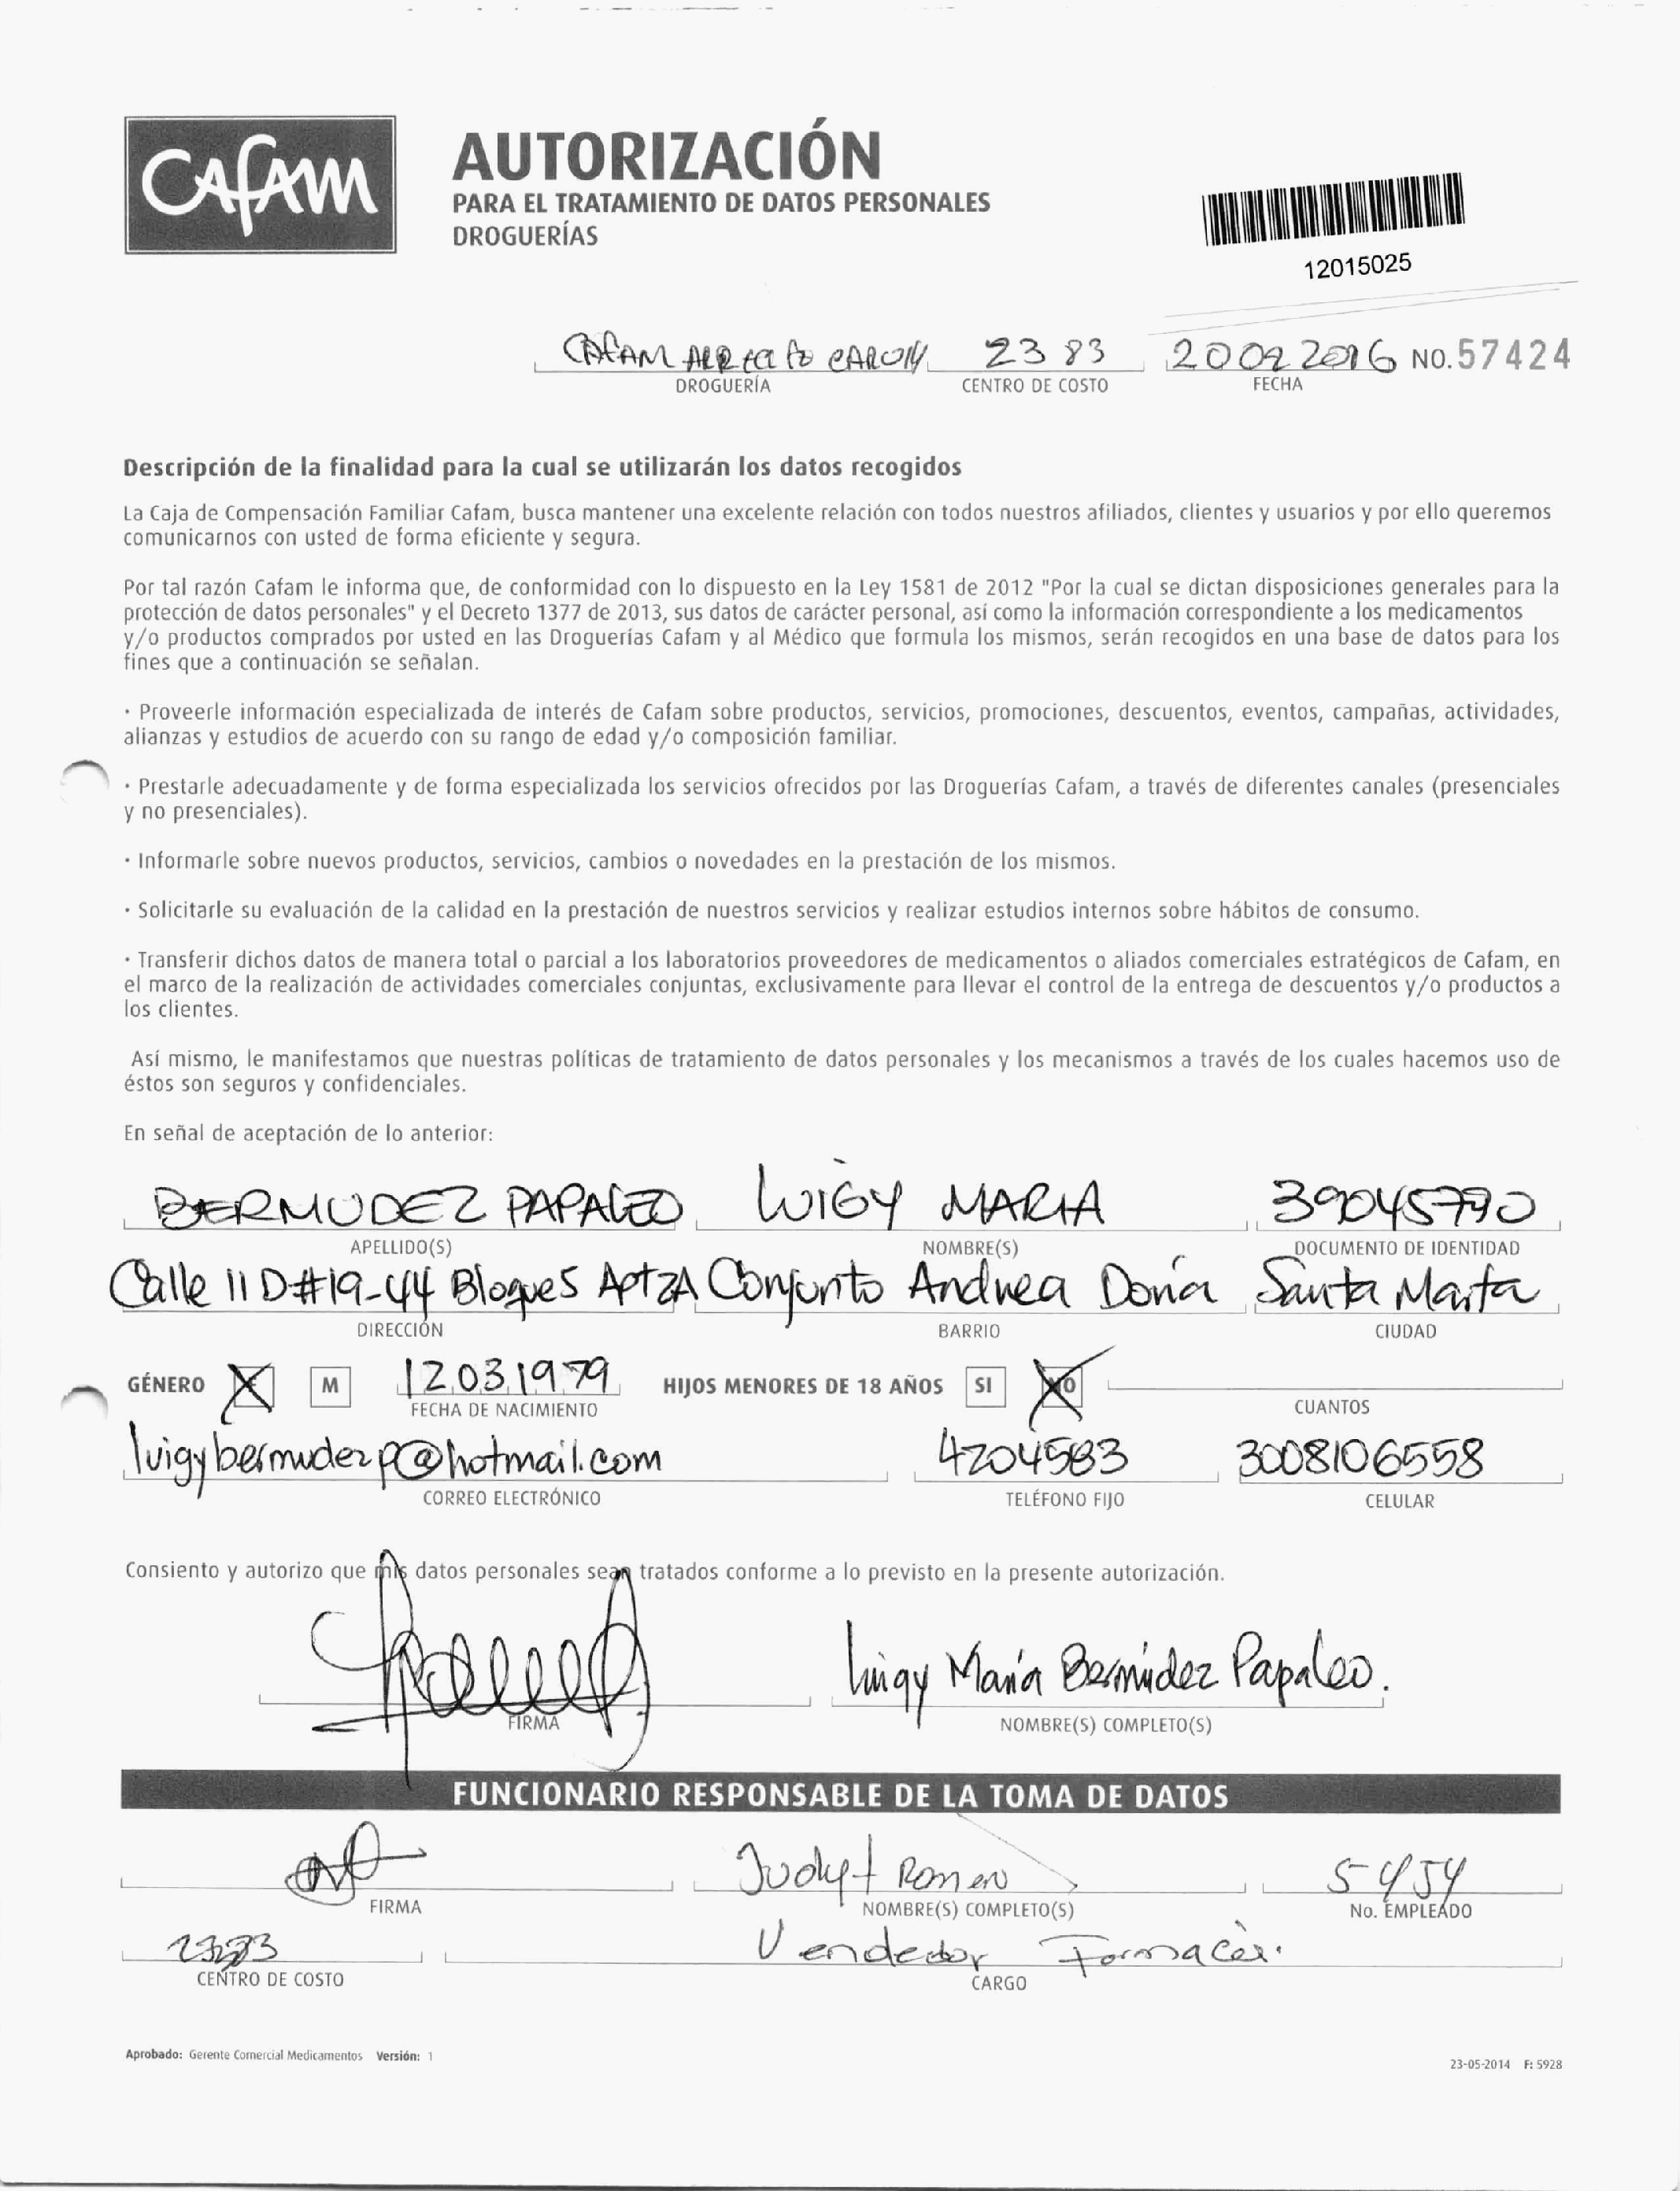 CAFAM
AUTORIZACIÓN
PARA EL TRATAMIENTO DE DATOS PERSONALES
DROGUERÍAS
12015025
CAFAM 23 83 20 02 2016 NO. 57424
DROGUERÍA CENTRO DE COSTO FECHA
Descripción de la finalidad para la cual se utilizarán los datos recogidos
La Caja de Compensación Familiar Cafam, busca mantener una excelente relación con todos nuestros afiliados, clientes y usuarios y por ello queremos
comunicarnos con usted de forma eficiente y segura.
Por tal razón Cafam le informa que, de conformidad con lo dispuesto en la Ley 1581 de 2012 "Por la cual se dictan disposiciones generales para la
protección de datos personales" y el Decreto 1377 de 2013, sus datos de carácter personal, así como la información correspondiente a los medicamentos
y/o productos comprados por usted en las Droguerías Cafam y al Médico que formula los mismos, serán recogidos en una base de datos para los
fines que a continuación se señalan.
· Proveerle información especializada de interés de Cafam sobre productos, servicios, promociones, descuentos, eventos, campañas, actividades,
alianzas y estudios de acuerdo con su rango de edad y/o composición familiar.
· Prestarle adecuadamente y de forma especializada los servicios ofrecidos por las Droguerías Cafam, a través de diferentes canales (presenciales
y no presenciales).
· Informarle sobre nuevos productos, servicios, cambios o novedades en la prestación de los mismos.
· Solicitarle su evaluación de la calidad en la prestación de nuestros servicios y realizar estudios internos sobre hábitos de consumo.
· Transferir dichos datos de manera total o parcial a los laboratorios proveedores de medicamentos o aliados comerciales estratégicos de Cafam, en
el marco de la realización de actividades comerciales conjuntas, exclusivamente para llevar el control de la entrega de descuentos y/o productos a
los clientes.
Así mismo, le manifestamos que nuestras políticas de tratamiento de datos personales y los mecanismos a través de los cuales hacemos uso de
éstos son seguros y confidenciales.
En señal de aceptación de lo anterior:
BERMUDEZ PAPALEO LUIGY MARIA 39045790
APELLIDO(S) NOMBRE(S) DOCUMENTO DE IDENTIDAD
Calle 11 D#19-44 Bloques Apt2A Conjunto Andrea Doria Santa Marta
DIRECCIÓN BARRIO CIUDAD
GÉNERO F M 12031979 HIJOS MENORES DE 18 AÑOS SI NO
FECHA DE NACIMIENTO CUANTOS
luigybermudezp@hotmail.com 4204583 3008106558
CORREO ELECTRÓNICO TELÉFONO FIJO CELULAR
Consiento y autorizo que mis datos personales sean tratados conforme a lo previsto en la presente autorización.
Luigy María Bermúdez Papaleo.
FIRMA NOMBRE(S) COMPLETO(S)
FUNCIONARIO RESPONSABLE DE LA TOMA DE DATOS
Judyt Romero 5454
FIRMA NOMBRE(S) COMPLETO(S) No. EMPLEADO
2383 Vendedor
CENTRO DE COSTO CARGO
Aprobado: Gerente Comercial Medicamentos Versión: 1
23-05-2014 F: 5928